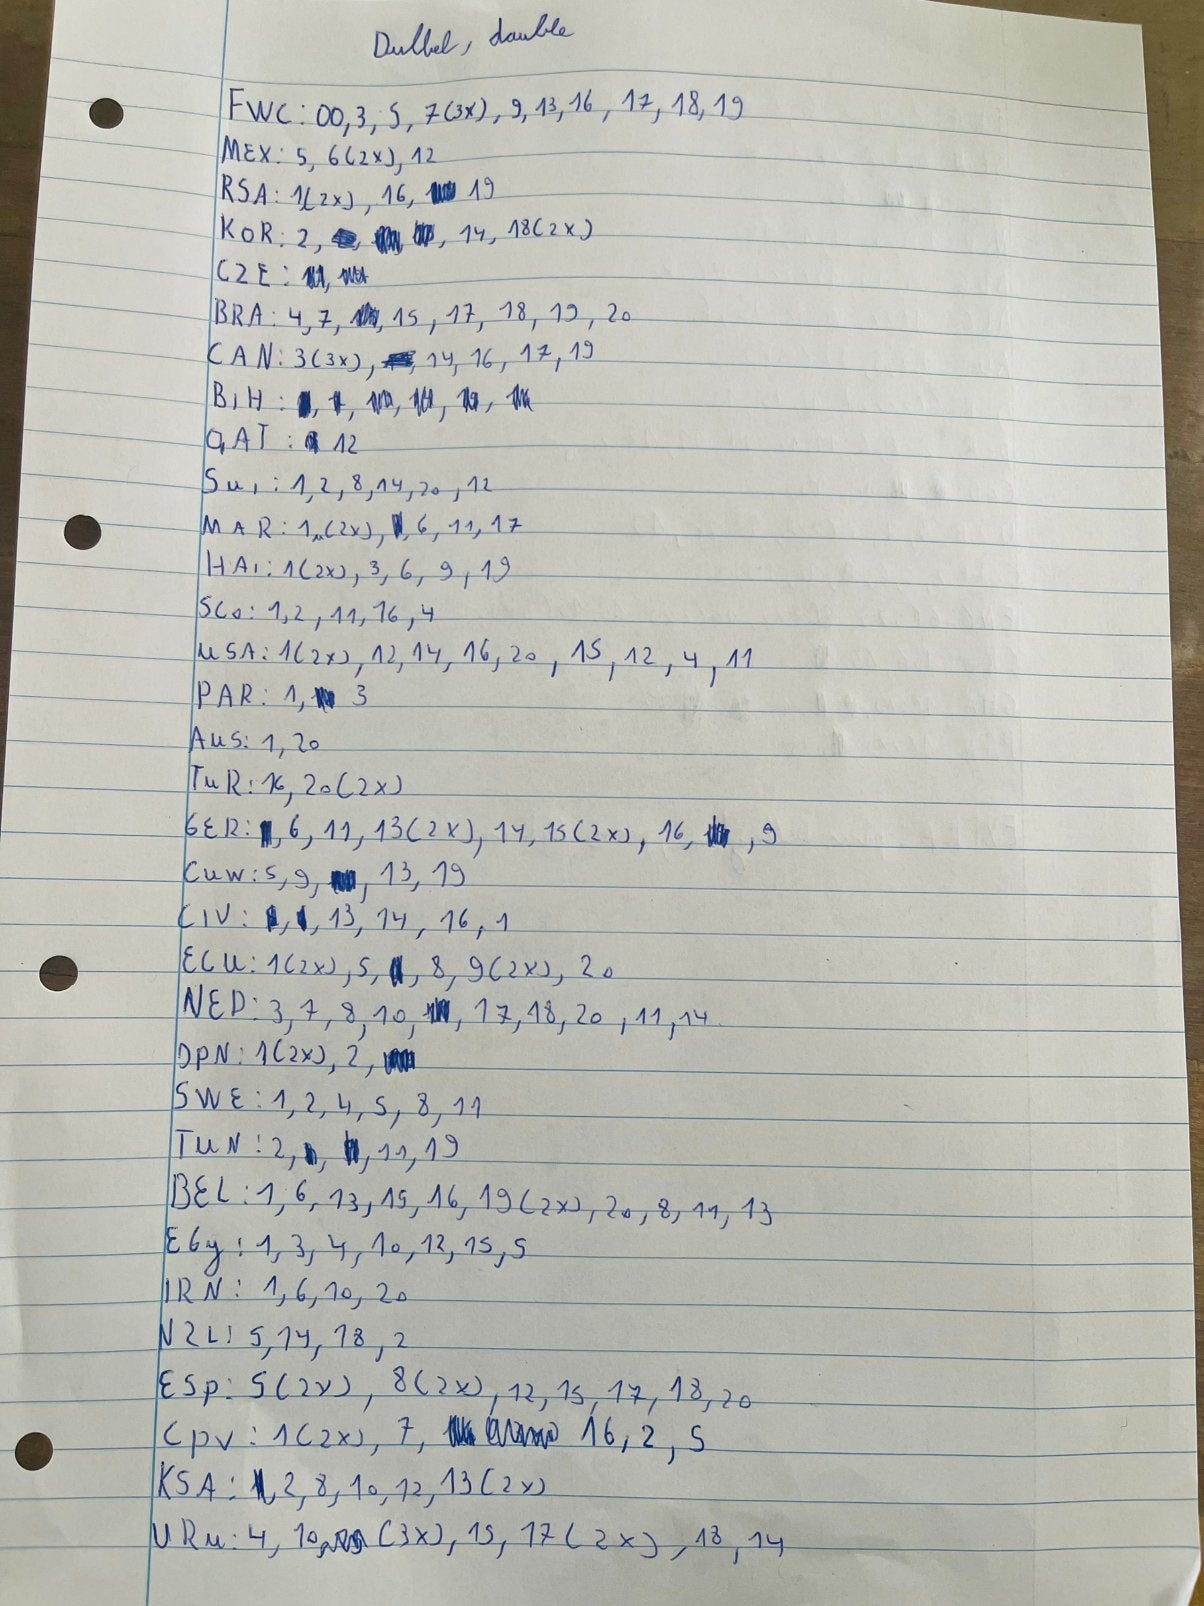 Dubbel, double
FWC: 00, 3, 5, 7(3x), 9, 13, 16, 17, 18, 19
MEX: 5, 6(2x), 12
RSA: 1(2x), 16, 19
KOR: 2, 14, 18(2x)
CZE:
BRA: 4, 7, 15, 17, 18, 19, 20
CAN: 3(3x), 14, 16, 17, 19
BIH:
QAT: 12
SUI: 1, 2, 8, 14, 20, 12
MAR: 1(2x), 6, 11, 17
HAI: 1(2x), 3, 6, 9, 19
SCO: 1, 2, 11, 16, 4
USA: 1(2x), 12, 14, 16, 20, 15, 12, 4, 11
PAR: 1, 3
AUS: 1, 20
TUR: 16, 20(2x)
GER: 6, 11, 13(2x), 14, 15(2x), 16, 9
CUW: 5, 9, 13, 19
CIV: 13, 14, 16, 1
ECU: 1(2x), 5, 8, 9(2x), 20
NED: 3, 7, 8, 10, 17, 18, 20, 11, 14
JPN: 1(2x), 2,
SWE: 1, 2, 4, 5, 8, 11
TUN: 2, 11, 19
BEL: 1, 6, 13, 15, 16, 19(2x), 20, 8, 11, 13
EGy: 1, 3, 4, 10, 12, 15, 5
IRN: 1, 6, 10, 20
NZL: 5, 14, 18, 2
ESP: 5(2x), 8(2x), 12, 15, 17, 18, 20
CPV: 1(2x), 7, 16, 2, 5
KSA: 2, 8, 10, 12, 13(2x)
URU: 4, 10, (3x), 15, 17(2x), 18, 14